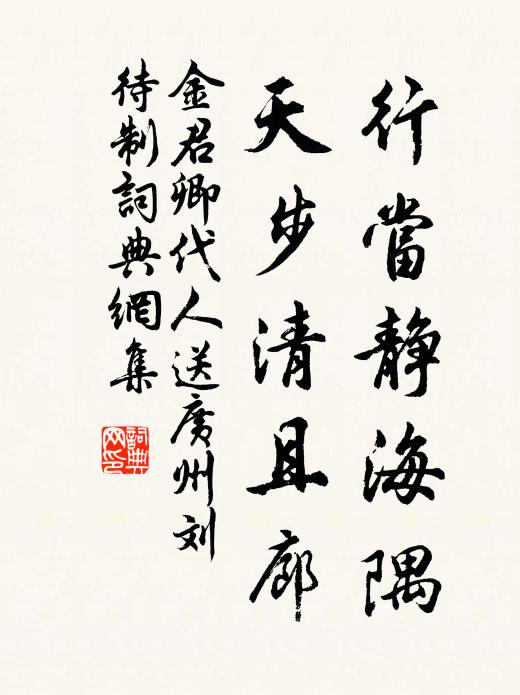 行當静海隅
天步清且廊
金君卿代人送廣州刘
待制詞典網集
詞典網印